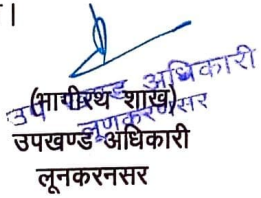 ।
(भागीरथ शाख)
उपखण्ड अधिकारी
लूनकरनसर
उप खण्ड अधिकारी
लूणकरणसर